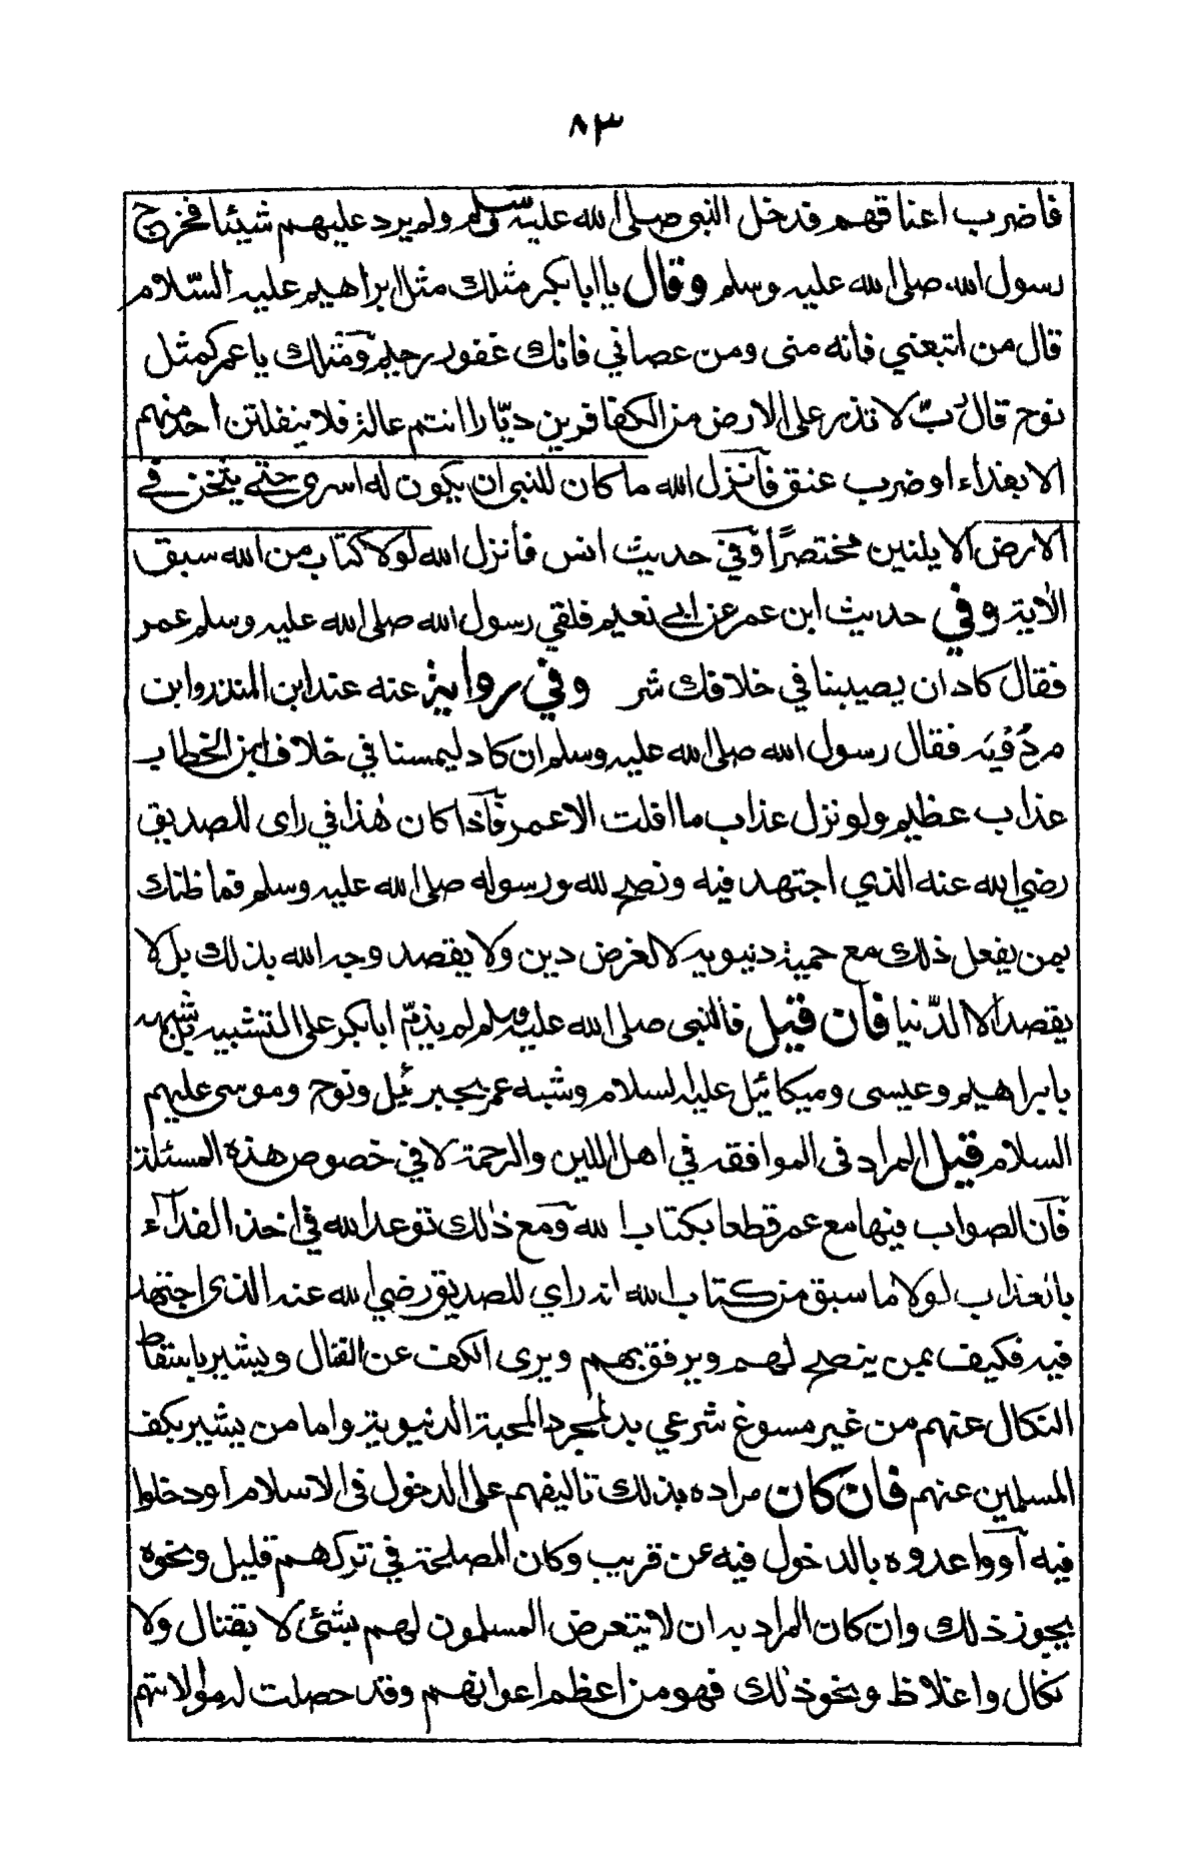 ٨٣
فاضرب اعناقهم فدخل النبى صلى الله عليه وسلم ولم يرد عليهم شيئا فخرج
رسول الله صلى الله عليه وسلم وقال يا ابا بكر مثلك مثل ابراهيم عليه السّلام
قال من اتبعني فانه منى ومن عصاني فانك غفور رحيم ومثلك يا عمر كمثل
نوح قال ربّ لا تذر على الارض من الكفافرين ديّارا انتم عالة فلا ينفلتن احد منهم
الا بفداء او ضرب عنق فأنزل الله ما كان للنبى ان يكون له اسرى حتى يثخن في
الارض الايلنين مختصرًا وفي حديث انس فأنزل الله لولا كتاب من الله سبق
الأية وفي حديث ابن عمر عن ابي نعيم فلقي رسول الله صلى الله عليه وسلم عمر
فقال كاد ان يصيبنا في خلافك شر وفي رواية عنه عند ابن المنذر وابن
مردُوْيَه فقال رسول الله صلى الله عليه وسلم ان كاد ليمسنا في خلاف ابن الخطاب
عذاب عظيم ولو نزل عذاب ما افلت الا عمر فأذا كان هٰذا في راى للصديق
رضي الله عنه الذي اجتهد فيه ونصح لله ورسوله صلى الله عليه وسلم فما ظنك
بمن يفعل ذلك مع حمية دنيوية لا لغرض دين ولا يقصد وجه الله بذلك بل لا
يقصد الا الدّنيا فأن قيل فألنبى صلى الله عليه وسلم لم يذمّ ابا بكر على التشبيه بل شبهه
بابراهيم وعيسى وميكائيل عليه السلام وشبه عمر بجبرئيل ونوح وموسى عليهم
السلام قيل المراد فى الموافقه في اهل اللين والرحمة لا في خصوص هذه المسئلة
فأن الصواب فيها مع عمر قطعا بكتاب الله ومع ذٰلك توعد الله في اخذ الفدآء
بالعذاب لولا ما سبق من كتاب الله انه راي للصديق رضي الله عنه الذى اجتهد
فيه فكيف بمن ينصح لهم ويرفق بهم ويرى الكف عن القتال ويشير باسقاط
النكال عنهم من غير مسوغ شرعي بل لمجرد المحبة الدنيوية واما من يشير بكف
المسلمين عنهم فان كان مراده بذلك تاليفهم على الدخول فى الاسلام أو دخلوا
فيه أو واعدوه بالدخول فيه عن قريب وكان المصلحة في تركهم قليل ونحوه
يجوز ذلك وان كان المراد به ان لا يتعرض المسلمون لهم بشئ لا بقتال ولا
نكال واغلاظ ونحو ذٰلك فهو من اعظم اعوانهم وقد حصلت له موالاتهم